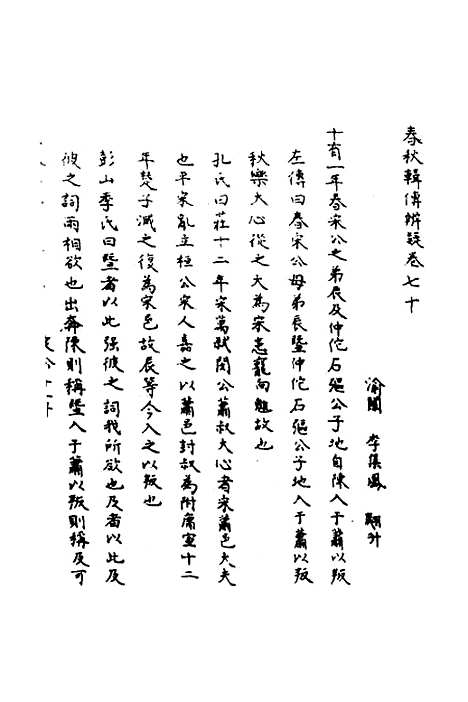 春秋輯傳辨疑卷七十
渝關 李集鳳 翽升
十有一年春宋公之弟辰及仲佗石彄公子地自陳入于蕭以叛
左傳曰春宋公母弟辰暨仲佗石彄公子地入于蕭以叛
秋樂大心從之大為宋患寵向魋故也
孔氏曰莊十二年宋萬弒閔公蕭叔大心者宋蕭邑大夫
也平宋亂立桓公宋人嘉之以蕭邑封叔為附庸宣十二
年楚子滅之復為宋邑故辰等今入之以叛也
彭山季氏曰暨者以此强彼之詞我所欲也及者以此及
彼之詞兩相欲也出奔陳則稱暨入于蕭以叛則稱及可
定公十一年